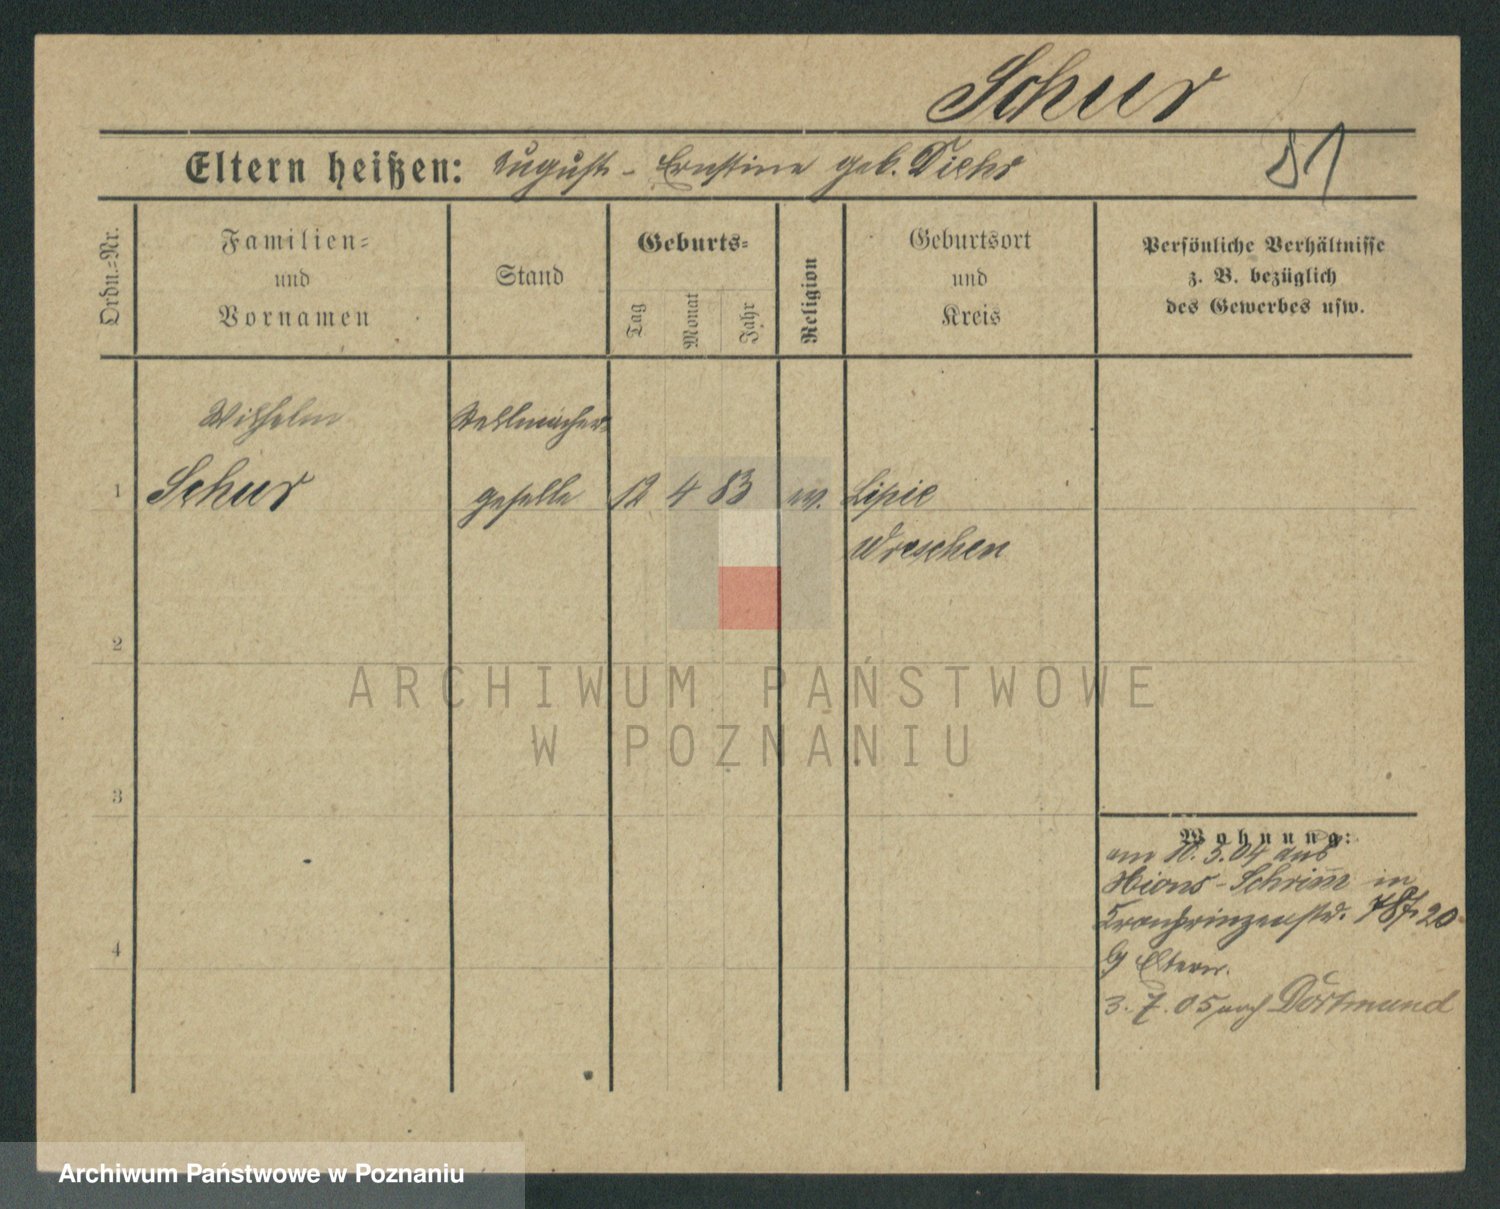 Schur
Eltern heißen: August - Ernstine geb. Diehr
81
Ordn.-Nr.
Familien-
und
Vornamen
Stand
Geburts-
Tag
Monat
Jahr
Religion
Geburtsort
und
Kreis
Persönliche Verhältnisse
z. B. bezüglich
des Gewerbes usw.
Wilhelm
Stellmacher-
1
Schur
geselle
12
4
83
ev.
Lipie
Wreschen
2
ARCHIWUM PAŃSTWOWE
W POZNANIU
3
Wohnung:
am 10. 3. 04 aus
Schrimm in
Kronprinzenstr. 20
Eltern.
3. 7. 05 nach Dortmund
4
Archiwum Państwowe w Poznaniu